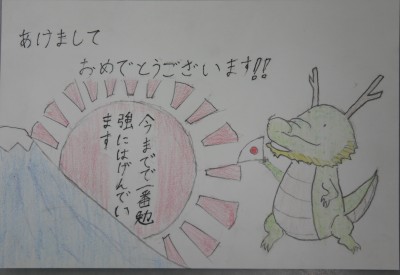 あけまして
おめでとうございます!!
今までで一番勉
強にはげんでい
ます